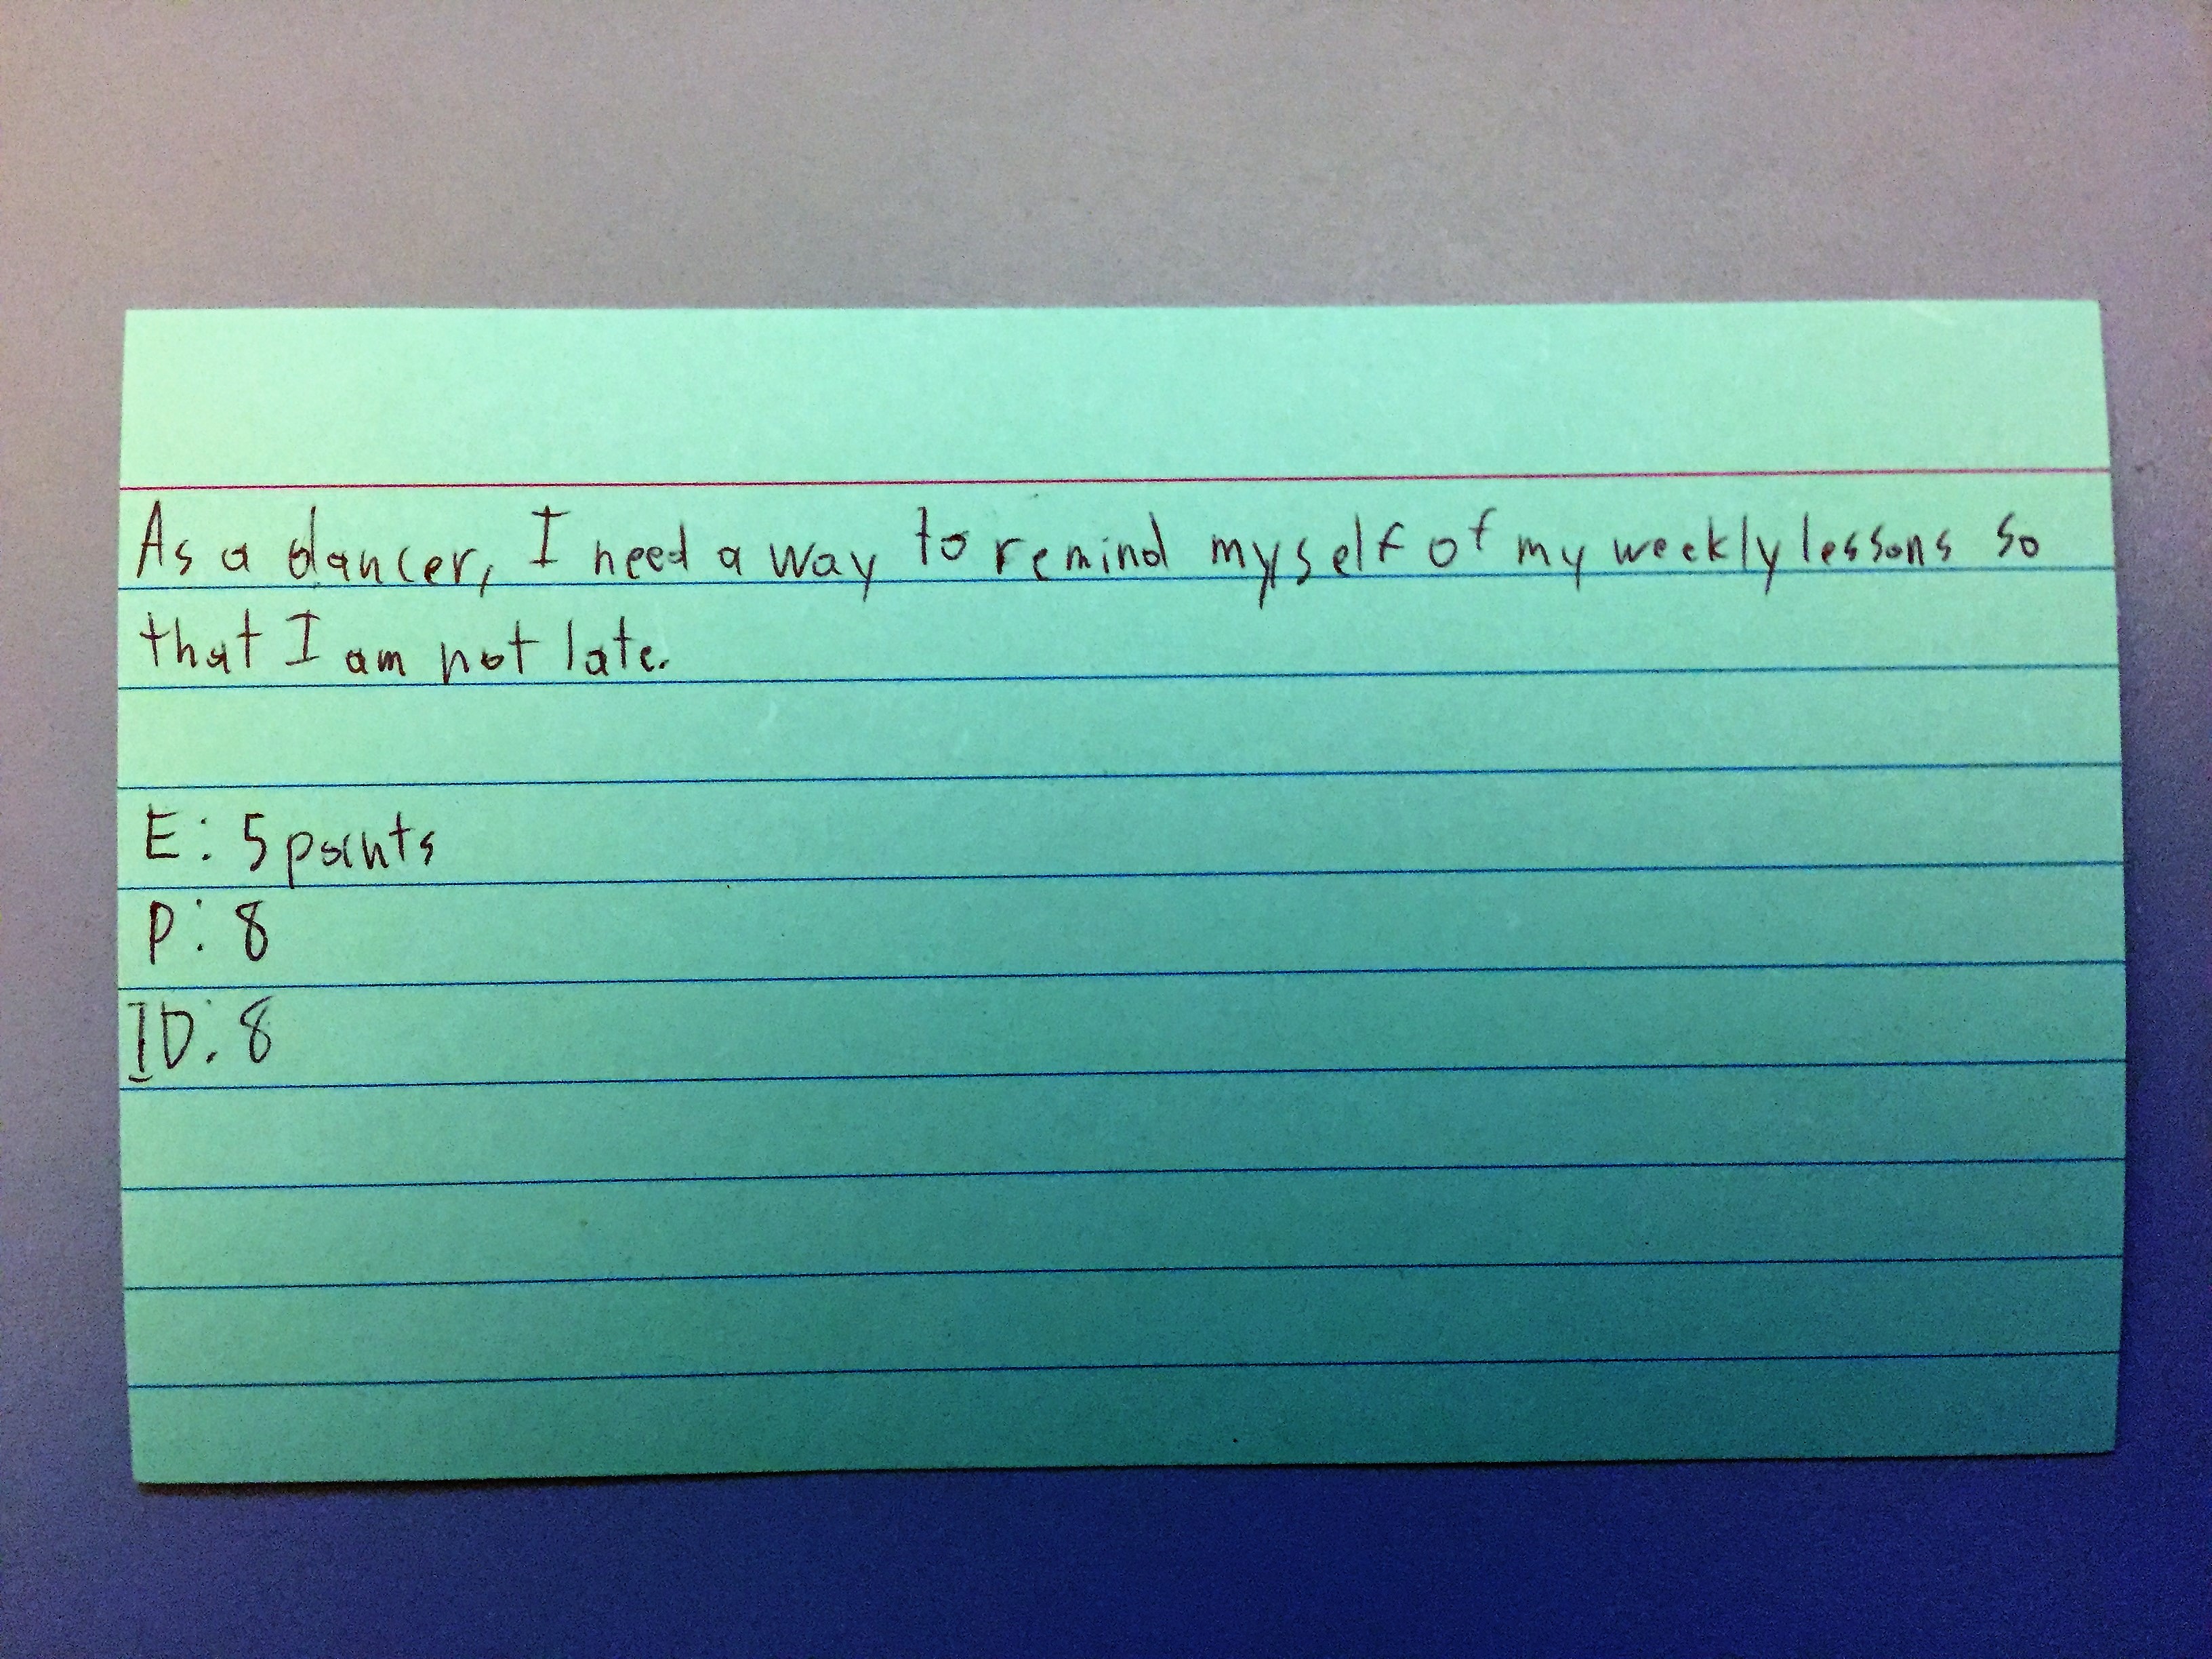 As a dancer, I need a way to remind myself of my weekly lessons so
that I am not late.
E: 5 points
P: 8
ID: 8